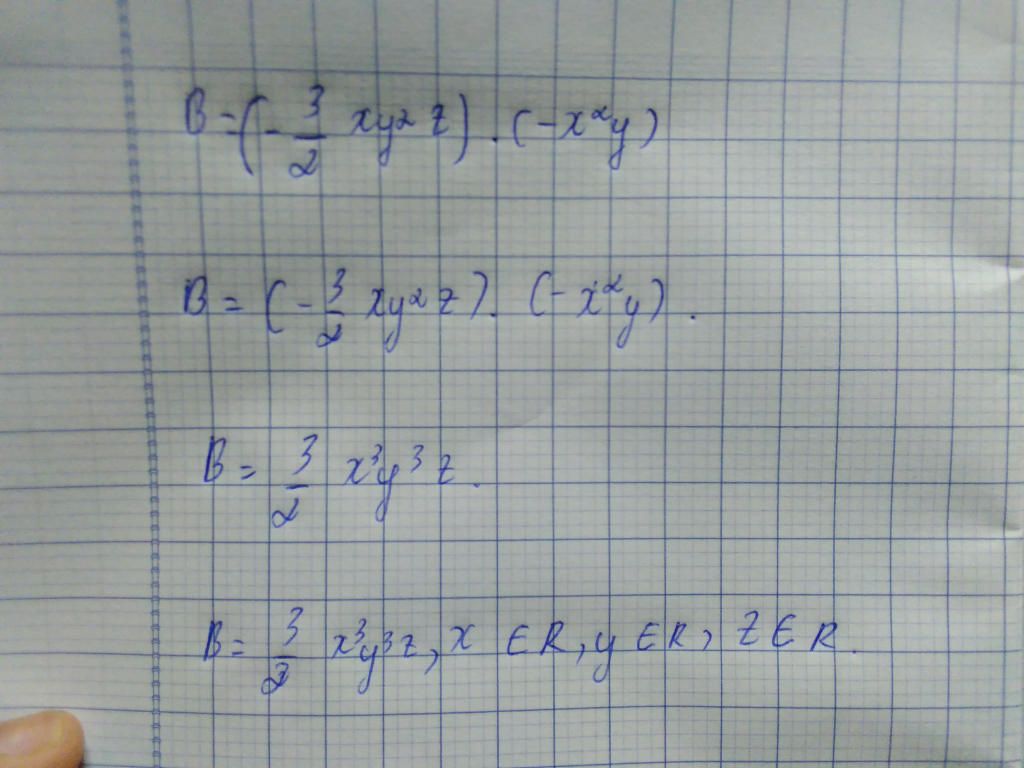 B = (- 3/2 xy² z) . (- x² y)
B = (- 3/2 xy² z) . (- x² y) .
B = 3/2 x³y³ z .
B = 3/2 x³y³z, x ∈ R, y ∈ R, z ∈ R.